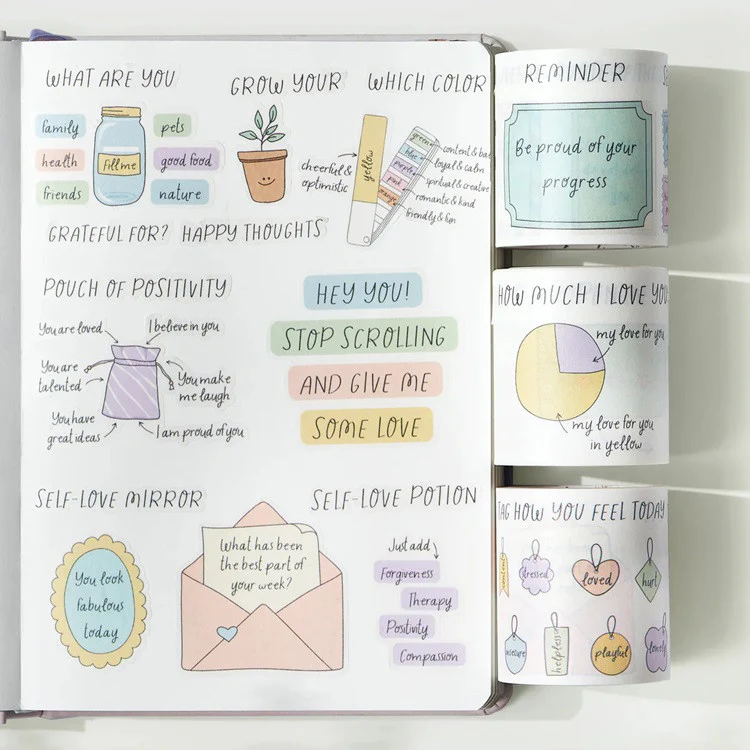 WHAT ARE YOU
family
health
friends
Fill me
pets
good food
nature
GRATEFUL FOR?
GROW YOUR
HAPPY THOUGHTS
WHICH COLOR
cheerful &
optimistic
yellow
green
blue
purple
pink
orange
content &
loyal & calm
spiritual & creative
romantic & kind
friendly & fun
POUCH OF POSITIVITY
You are loved
I believe in you
You are
talented
You make
me laugh
You have
great ideas
I am proud of you
HEY YOU!
STOP SCROLLING
AND GIVE ME
SOME LOVE
SELF-LOVE MIRROR
You look
fabulous
today
What has been
the best part of
your week?
SELF-LOVE POTION
Just add
Forgiveness
Therapy
Positivity
Compassion
REMINDER
Be proud of your
progress
HOW MUCH I LOVE YOU
my love for you
my love for you
in yellow
TAG HOW YOU FEEL TODAY
stressed
loved
hurt
helpless
playful
lonely